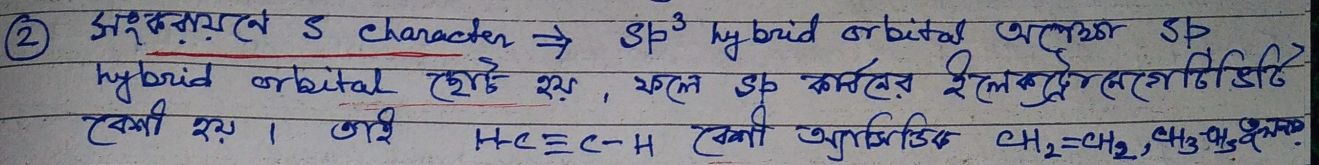 ② সংকরায়নে S character ⇒ sp³ hybrid orbital অপেক্ষা sp
hybrid orbital ছোট হয়, ফলে sp কার্বনের ইলেকট্রোনেগেটিভিটি
বেশী হয়। তাই HC≡C-H বেশী অ্যাসিডিক CH₂=CH₂, CH₃-CH₃